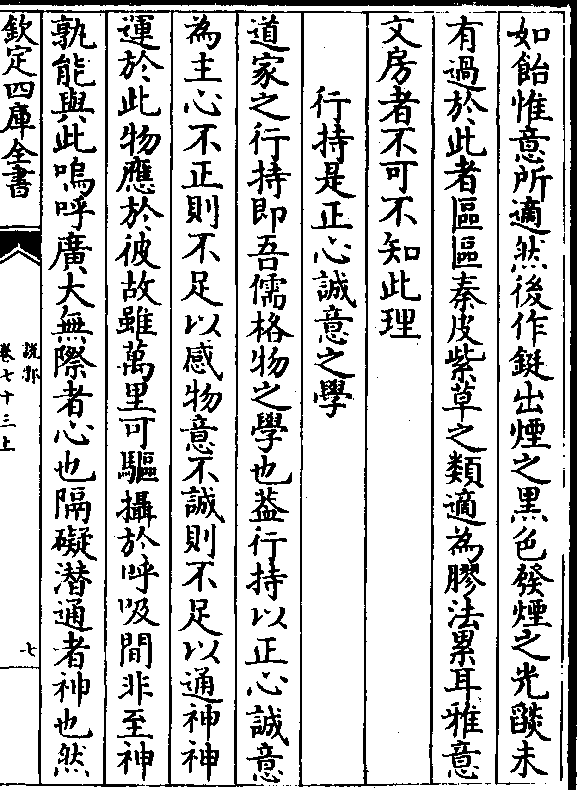 如飴惟意所適然後作鋌出煙之黒色發煙之光燄未
有過於此者區區秦皮紫草之類適為膠法累耳雅意
文房者不可不知此理
行持是正心誠意之學
道家之行持即吾儒格物之學也葢行持以正心誠意
為主心不正則不足以感物意不誠則不足以通神神
運於此物應於彼故雖萬里可驅攝於呼吸間非至神
孰能與此嗚呼廣大無際者心也隔礙潜通者神也然
欽定四庫全書
說郛
卷七十三上
七